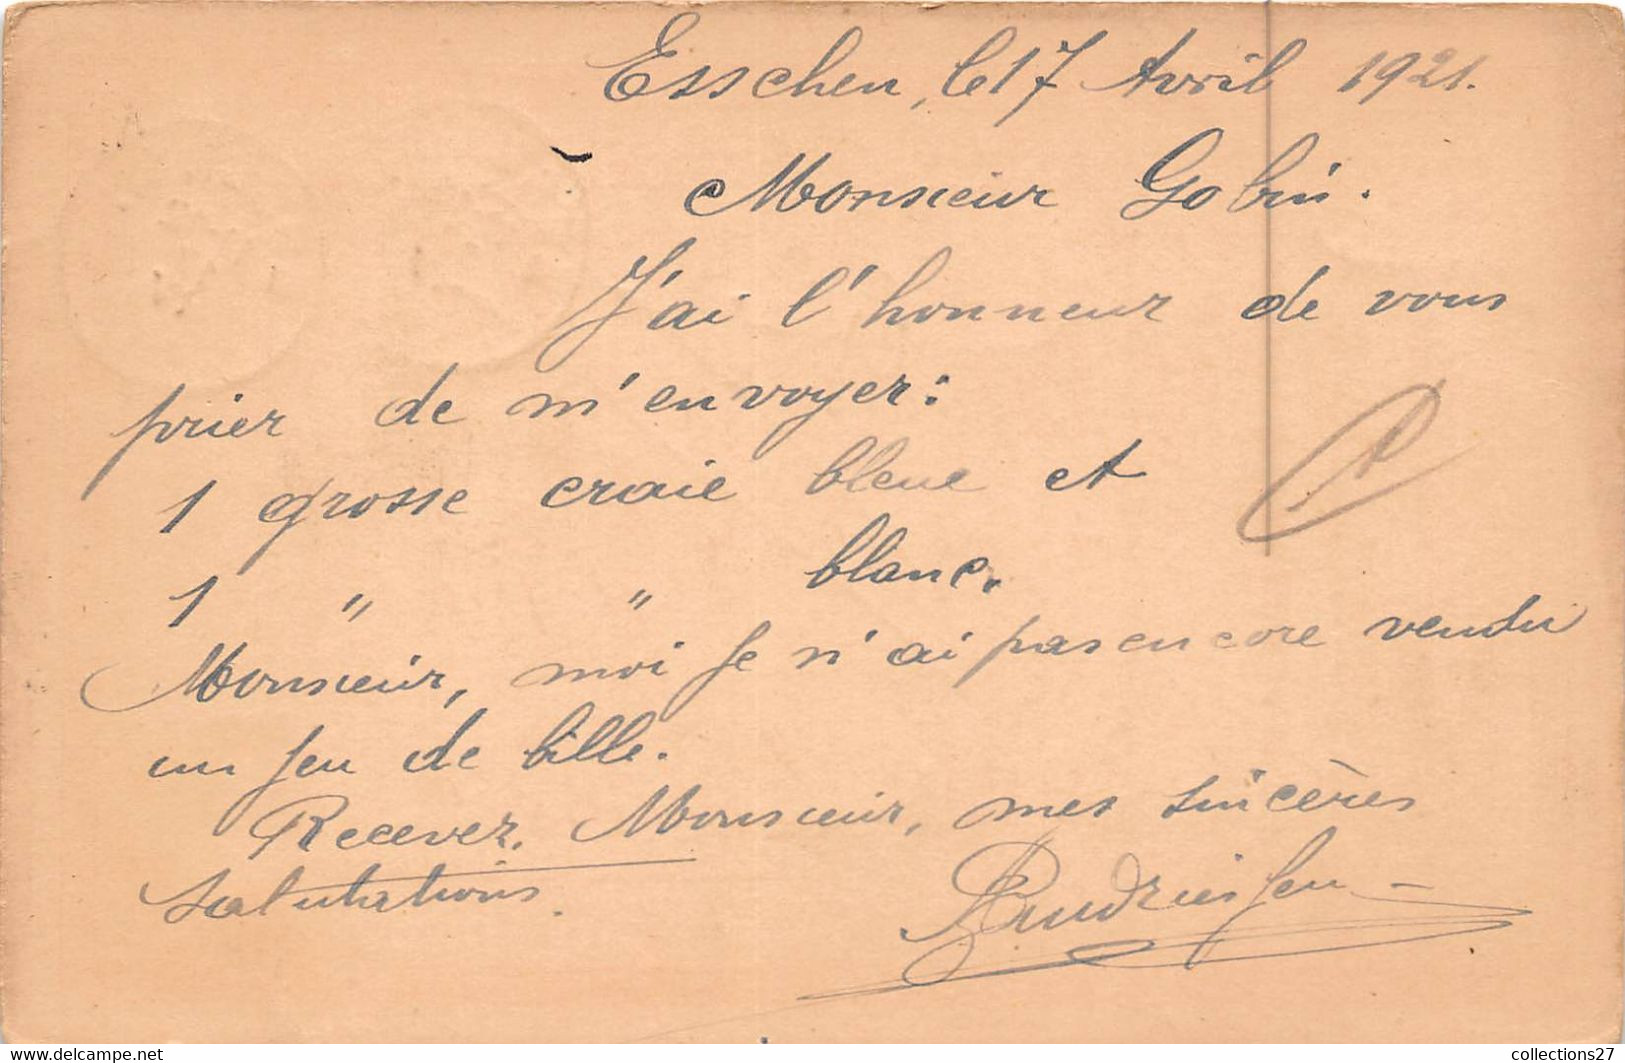 Esschen, le 17 Avril 1921.
Monsieur Gobin.
J'ai l'honneur de vous
prier de m'envoyer:
1 grosse craie bleue et
1 " " blanc.
Monsieur, moi je n'ai pas encore vendu
un jeu de bille.
Recevez, Monsieur, mes sincères
Salutations.
collections27